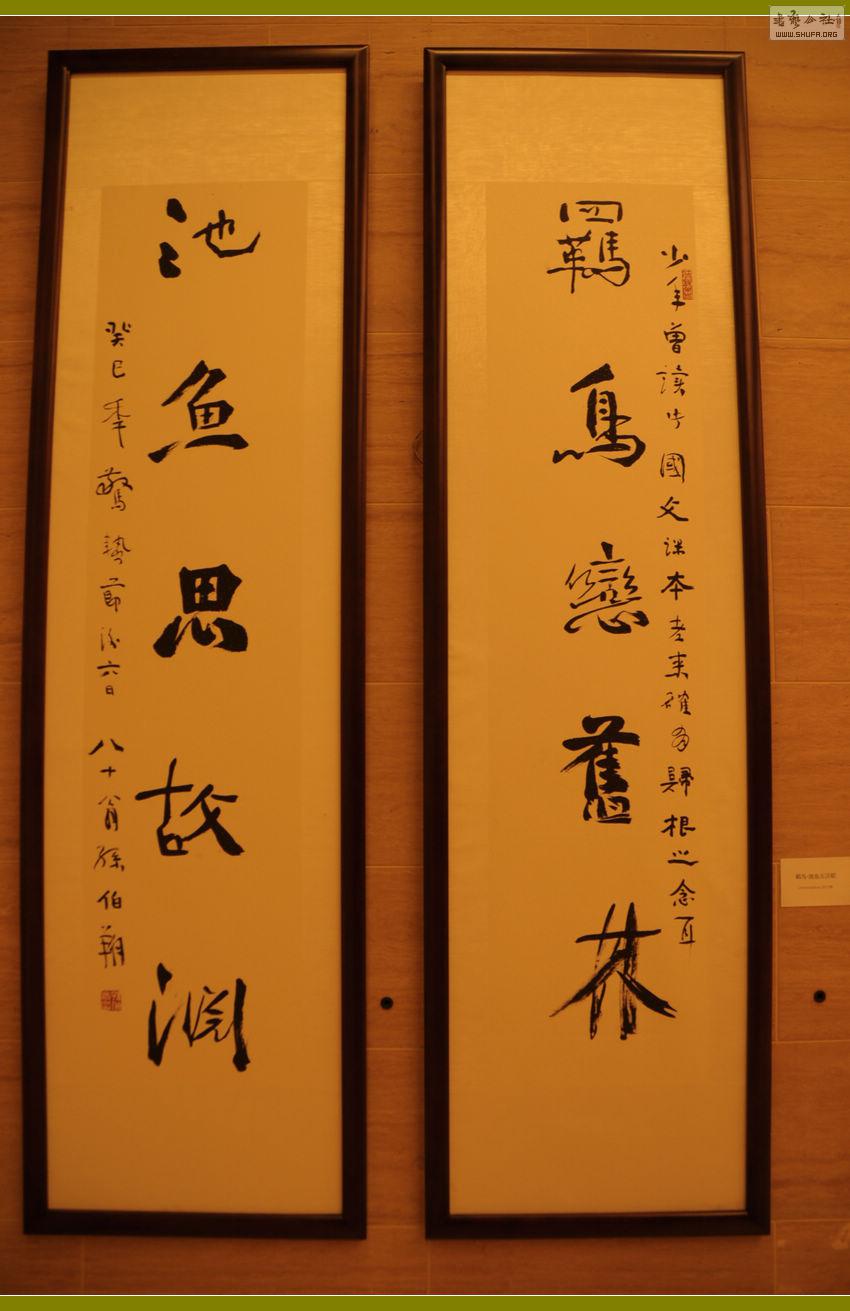 羈鳥戀舊林
少年曾讀此國文課本老來確有歸根之念耳
池鱼思故淵
癸巳年驚蟄節後六日 八十翁孫伯翔
书艺公社
WWW.SHUFA.ORG